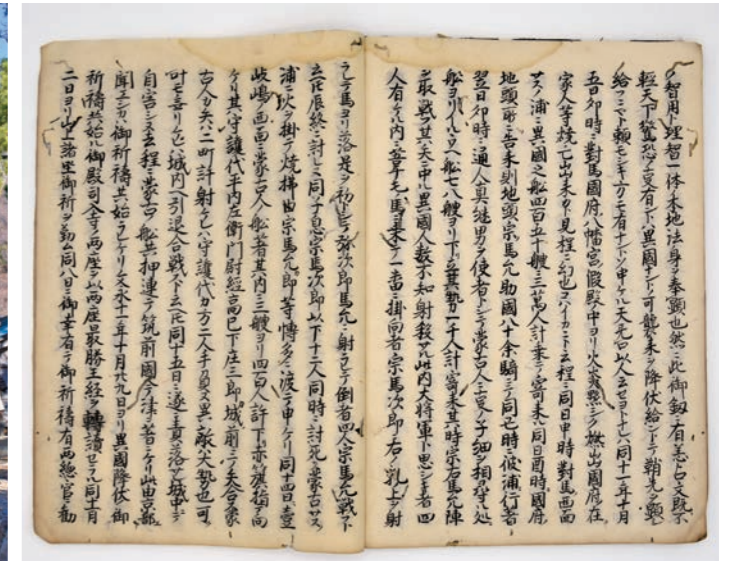 ノ智用ト理智一体本地法身ヲ奉顕也然ニ此御釼有善占文既不
軽天下驚恐 有シトハ異國ナントノ可襲来ヲ降伏給シトテ鞘光ヲ顕
給フニヤト頼モシキ 有ナントソ申ケル天 以人云セヨトナレハ同十一年十月
五日卯時ニ對馬國府八幡宮仮殿ノ中ヨリ火炎 シク燃出國府在
家人等焼亡出来カト見程ニ幻也コハイカニト云程ニ同日申時對馬西面
サス浦ニ異國之舩四百五十艘三萬人計乗テ寄来ル同日酉時國府
地頭所ニ告来則地頭宗馬允助國八十余騎ニテ同 時ニ彼浦行着
翌日卯時ニ通人真継男ヲ使者トシテ蒙古人ニ ノ子細ヲ相尋ル処
舩ヨリ 舩七八艘ヨリ下立其勢 一千人計寄来其時宗右馬允陣
取戦フ其矢ニ中ル異國人数不知射殺サル此内大将軍ト思シキ者四
人有ケル内ニ葦毛馬ニ乗テ一番ニ掛向者宗馬次郎ニ右ノ乳上ヲ射
ラレテ馬ヨリ落是ヲ初トシテ弥次郎馬允ニ射ラレテ倒者四人宗馬允戦フト
云ヘ 終ニ討レヌ同子息宗馬次郎以下十二人同時ニ討死ス蒙古サス
浦ニ火ヲ掛テ焼拂由宗馬允郎等博多ニ渡テ申ケリ同十四日壹
岐嶋ノ西面ニ蒙古人舩着其内ニ三艘ヨリ四百人許下 籏指テ向
ケリ其守護代平内左衛門尉経高已下庄三郎城ノ前ニテ矢合蒙
古人カ矢ハ二町計射ケレハ守護代カ方二人手負又異敵大勢也可
叶モ無リケレハ城内ヘ引退合戦スト云ヘ 同十五日ニ遂責落サレ城中ニテ
自害シヌ云程ニ蒙古ノ舩共押連テ筑前國今津ニ着ケリ此由京都
聞エシカハ御祈祷共始ラレケリ文永十一年十月廿九日ヨリ異國降伏ノ御
祈祷共始ル御殿司入寺ノ両座ヲ以両座最勝王経ヲ轉讀セラル同十一月
二日ヨリ山上諸坐御祈ヲ勤ム同八日ニ御幸有テ御祈祷有両惣官ニ勅